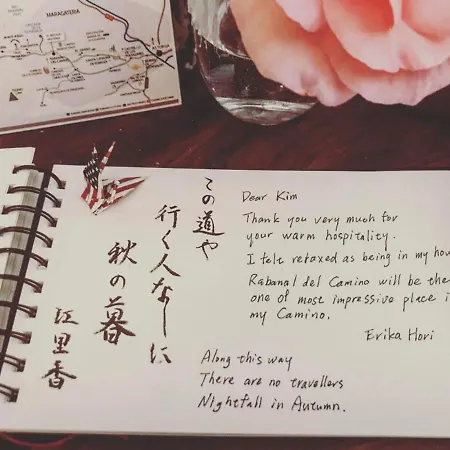 MARAGATERIA
この道や
行く人なしに
秋の暮
江里香
Dear Kim
Thank you very much for
your warm hospitality.
I felt relaxed as being in my
Rabanal del Camino will be
one of most impressive place
my Camino.
Erika Hori
Along this way
There are no travellers
Nightfall in Autumn.